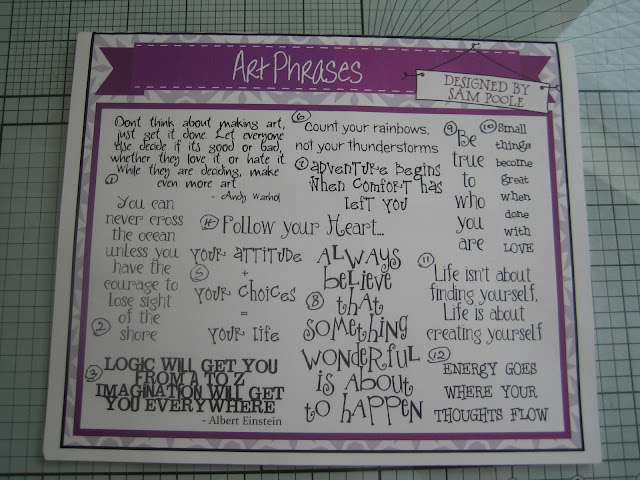 Art Phrases
DESIGNED BY
SAM POOLE
Dont think about making art,
just get it done. Let everyone
else decide if its good or bad,
whether they love it or hate it
While they are deciding, make
even more art
- Andy Warhol
1
You can
never cross
the ocean
unless you
have the
courage to
lose sight
of the
shore
2
3
LOGIC WILL GET YOU
FROM A TO Z
IMAGINATION WILL GET
YOU EVERYWHERE
- Albert Einstein
4
Follow your Heart...
your attitude
5
+
your choices
=
your life
6
Count your rainbows,
not your thunderstorms
7
adventure begins
when comfort has
left you
ALWAYS
believe
8
that
something
wonderful
is about
to happen
9
Be
true
to
who
you
are
10
Small
things
become
great
when
done
with
LOVE
11
Life isn't about
finding yourself,
Life is about
creating yourself
12
ENERGY GOES
WHERE YOUR
THOUGHTS FLOW